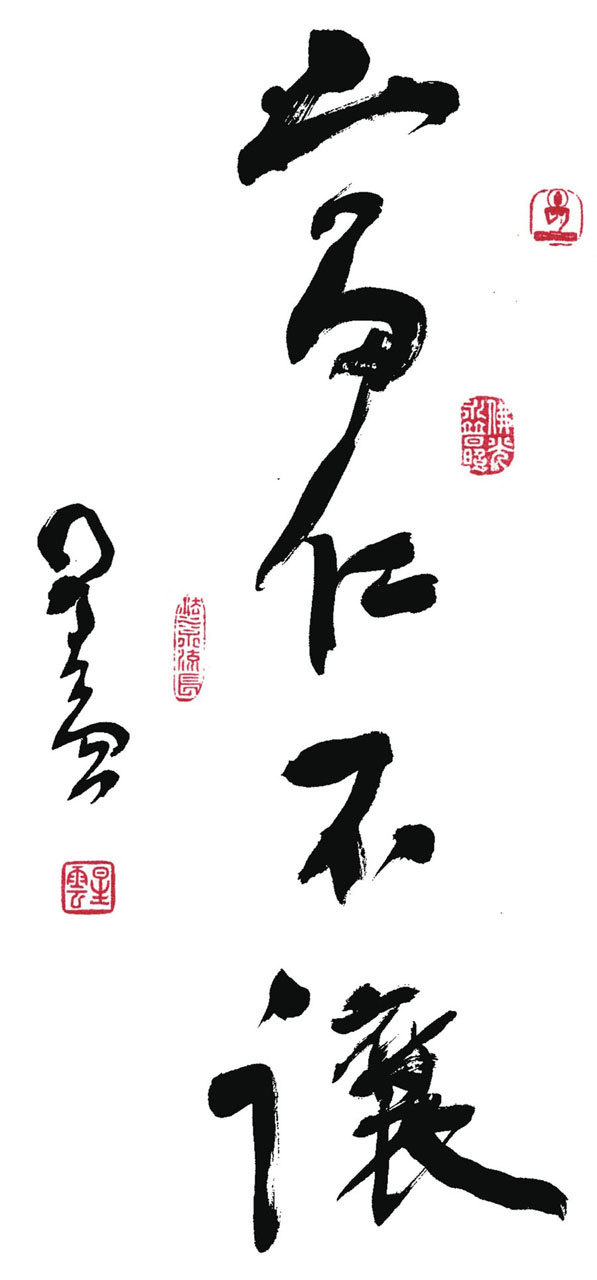 當仁不讓
佛光永普照
法水流長
星雲
星雲